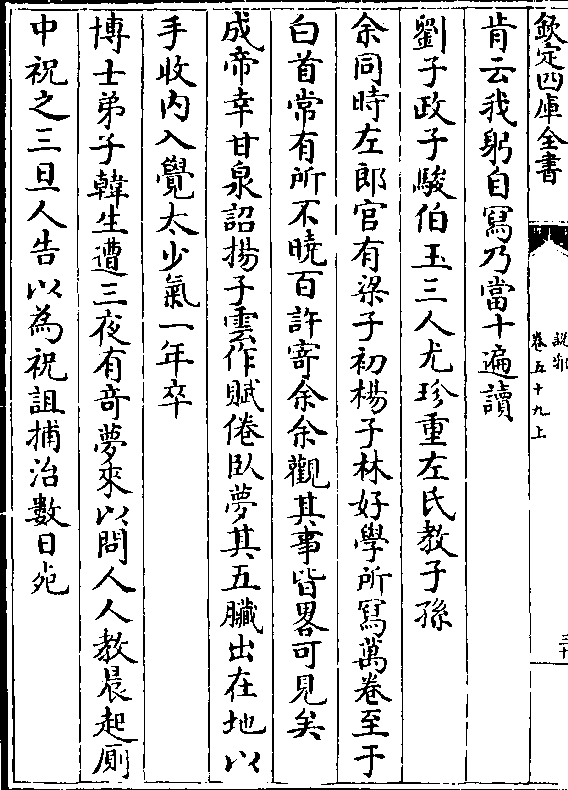 欽定四庫全書
說郛
卷五十九上
三十
肯云我躬自寫乃當十遍讀
劉子政子駿伯玉三人尤珍重左氏教子孫
余同時左郎官有梁子初楊子林好學所寫萬卷至于
白首常有所不曉百許寄余余觀其事皆畧可見矣
成帝幸甘泉詔揚子雲作賦倦臥夢其五臟出在地以
手收内入覺太少氣一年卒
博士弟子韓生遭三夜有奇夢來以問人人教晨起厠
中祝之三旦人告以為祝詛捕治數日死